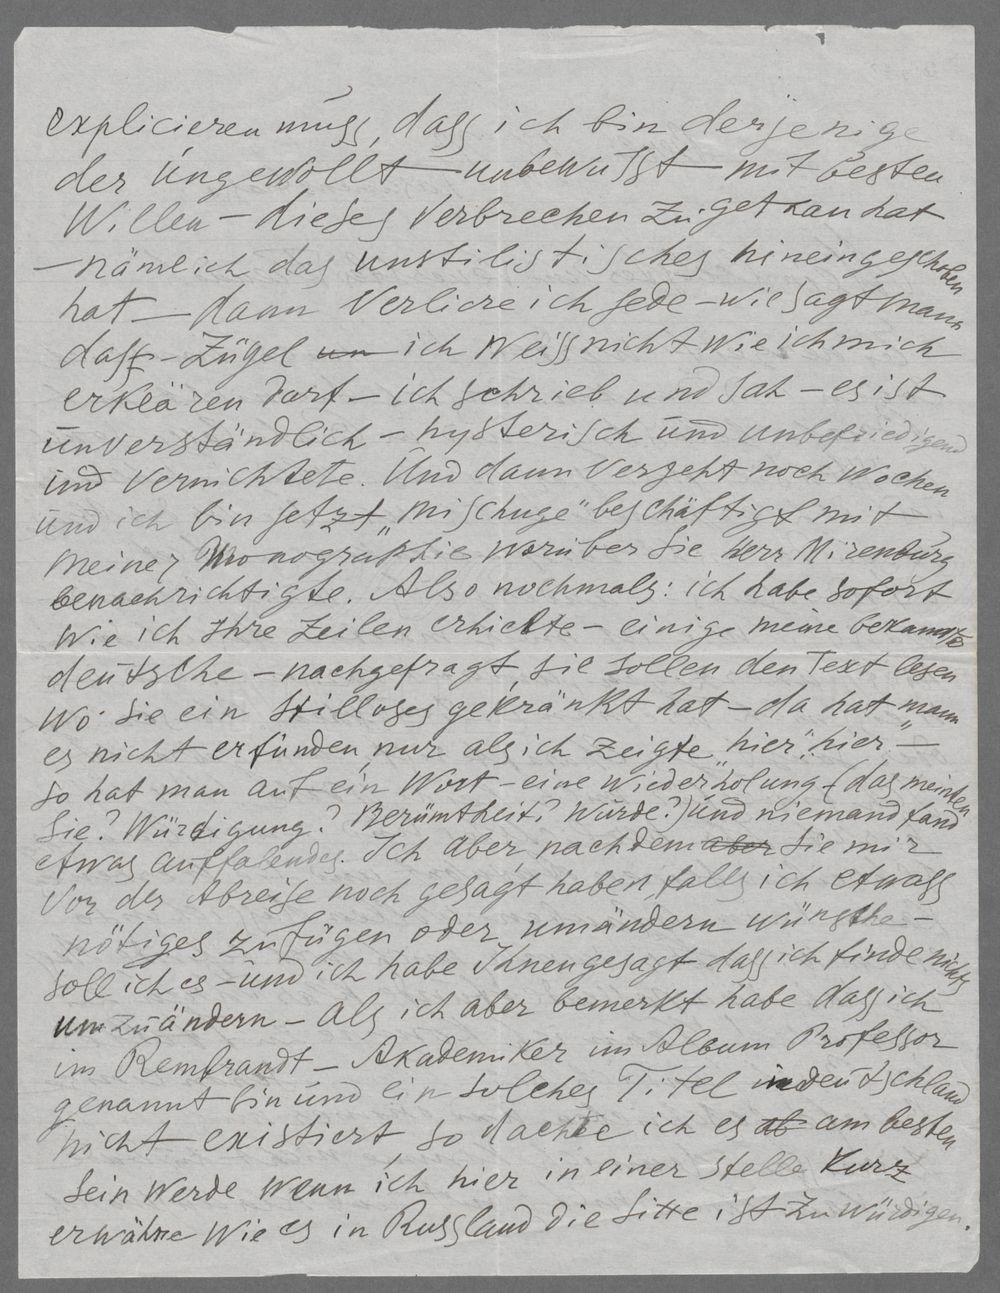 explicieren muss, dass ich bin derjenige
der ungewollt – unbewusst – mit besten
Willen – dieses Verbrechen zugetan hat
– nämlich das unstilistisches hineingeschoben
hat – dann Verliere ich jede – wie sagt mann
dass – Zügel un ich Weiss nicht wie ich mich
erklären darf – ich schrieb und sah – es ist
unverständlich – hysterisch und unbefriedigend
und vernichtete. Und dann vergeht noch Wochen
und ich bin jetzt „mischuge" beschäftigt mit
meiner Monographie worüber Sie Herr Mirenburg
benachrichtigte. Also nochmals: ich habe sofort
wie ich Ihre Zeilen erhielte – einige meine bekannte
deutsche – nachgefragt, sie sollen den Text lesen
wo Sie ein Stilloses gekränkt hat – da hat „mann
es nicht erfunden, nur als ich zeigte „hier" „hier" –
so hat man auf ein Wort – eine wiederholung (das meinten
Sie? Würdigung? Berümtheit? Würde?) und niemand fand
etwas auffalendes. Ich aber, nachdem aber Sie mir
Vor der Abreise noch gesagt haben, falls ich etwass
nötiges zufügen oder umändern wünsche –
soll ich es – und ich habe Ihnen gesagt dass ich finde nichts
umzuändern – als ich aber bemerkt habe dass ich
im Rembrandt – Akademiker im Album Professor
genannt bin und ein solches Titel in deutschland
nicht existiert, so dachte ich es ab am besten
sein werde wenn ich hier in einer stelle kurz
erwähne wie es in Russland die sitte ist zu würdigen.